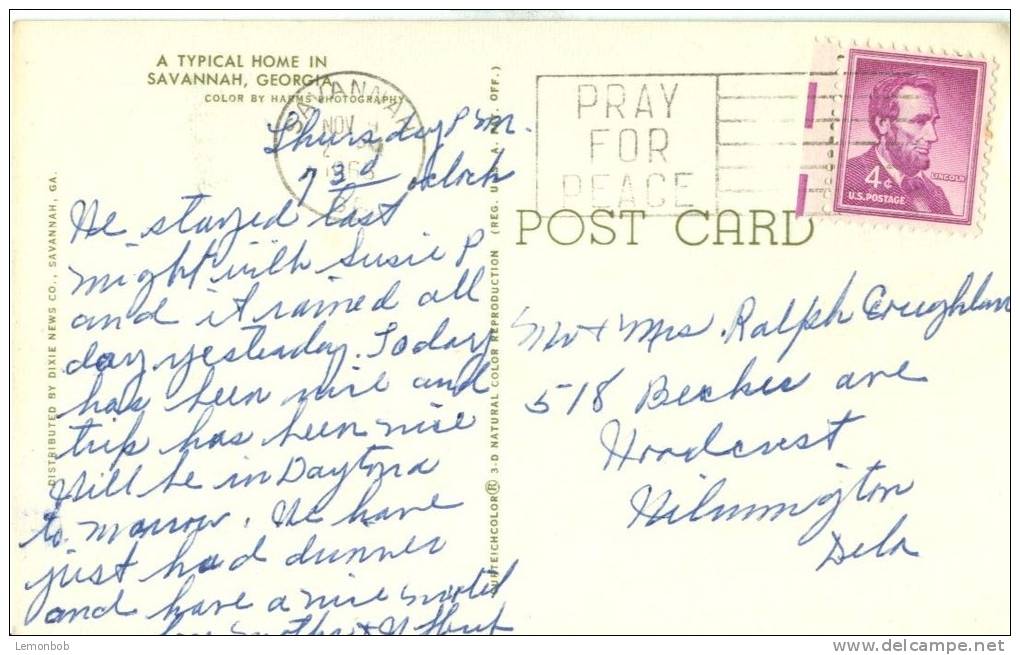 A TYPICAL HOME IN
SAVANNAH, GEORGIA
COLOR BY HARMS PHOTOGRAPHY
SAVANNAH
NOV
PRAY
FOR
PEACE
4¢
LINCOLN
U.S. POSTAGE
POST CARD
Thursday P m.
7 30 o'clock
We stayed last
night with Susie P
and it rained all
day yesterday. Today
has been nice and
trip has been nice
Will be in Daytona
to morrow. We have
just had dinner
and have a nice motel
Mother &
DISTRIBUTED BY DIXIE NEWS CO., SAVANNAH, GA.
CURTEICHCOLOR® 3-D NATURAL COLOR REPRODUCTION (REG. U.S.A. PAT. OFF.)
Mr + Mrs. Ralph Creighton
518 Beckes ave
Woodcrest
Wilmington
Dela
Lemonbob
www.delcampe.net